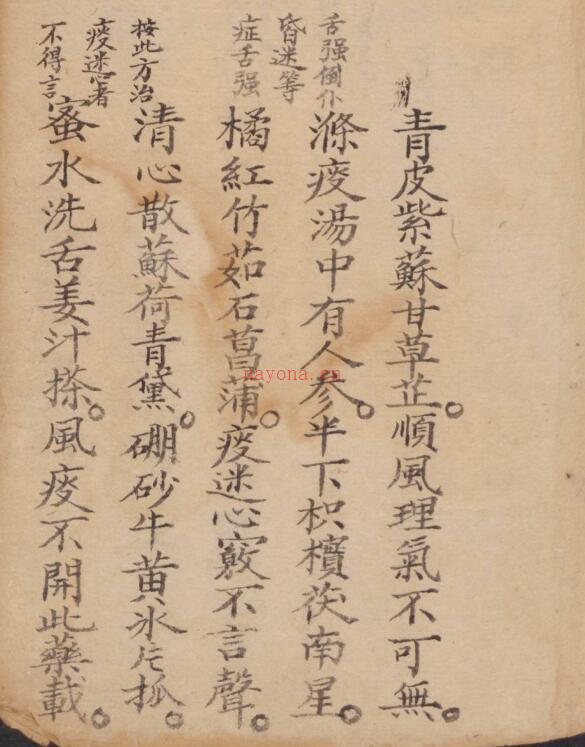 青皮紫蘇甘草芷。順風理氣不可無。
舌强倒仆
昏迷等
症舌强
滌痰湯中有人參。半下枳檳茯南星。
橘紅竹茹石菖蒲。痰迷心竅不言聲。
按此方治
痰迷心者
不得言
清心散蘇荷青黛。硼砂牛黄氷片抓。
蜜水洗舌姜汁搽。風痰不開此藥載。
nayona.cn